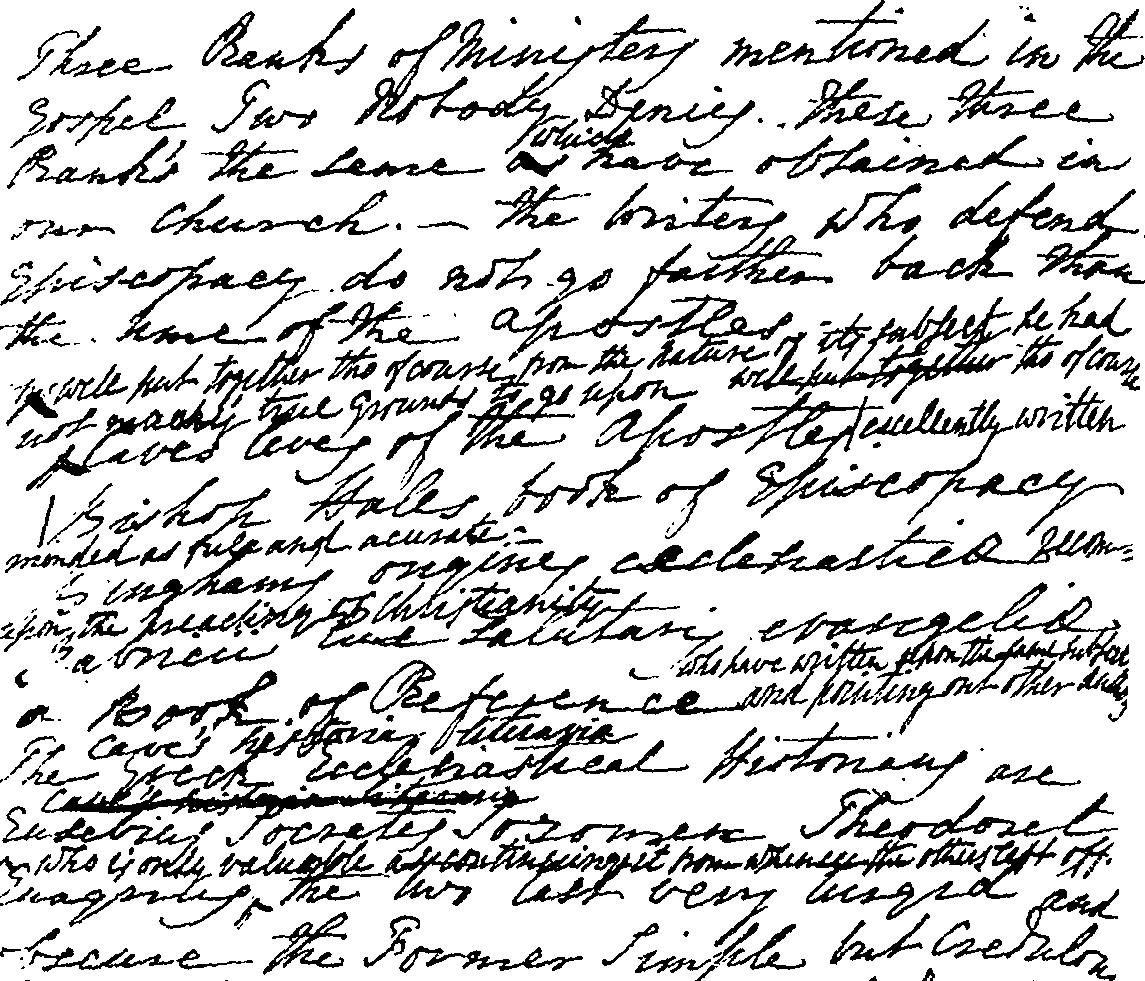 Three Ranks of Ministers mentioned in the
Gospel Two Nobody Denies. These three
which
Ranks the same as have obtained in
our Church. — The Writers who defend
Episcopacy do not go farther back than
the time of the Apostles
well put together tho of course from the nature of its subject he had
not many true Grounds to go upon well put together tho of course
Caves lives of the Apostles excellently written
Bishop Halls book of Episcopacy
mended as full and accurate.
Binghams origines ecclesiasticæ Recom=
upon the preaching of Christianity
Fabricii Lux Salutaris evangelii
who have written upon the same subject
a Book of Reference and pointing out other
Cave's historia literaria
The Greek Ecclesiastical Historians are
Cave's historia literaria
Eusebius Socrates Sozomen Theodoret
who is only valuable as continuing it from whence the others left off.
Evagrius, the two last very turgid and
obscure the Former Simple but Credulou